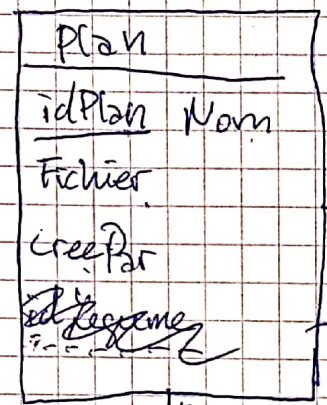 Plan
idPlan Nom
Fichier
creePar